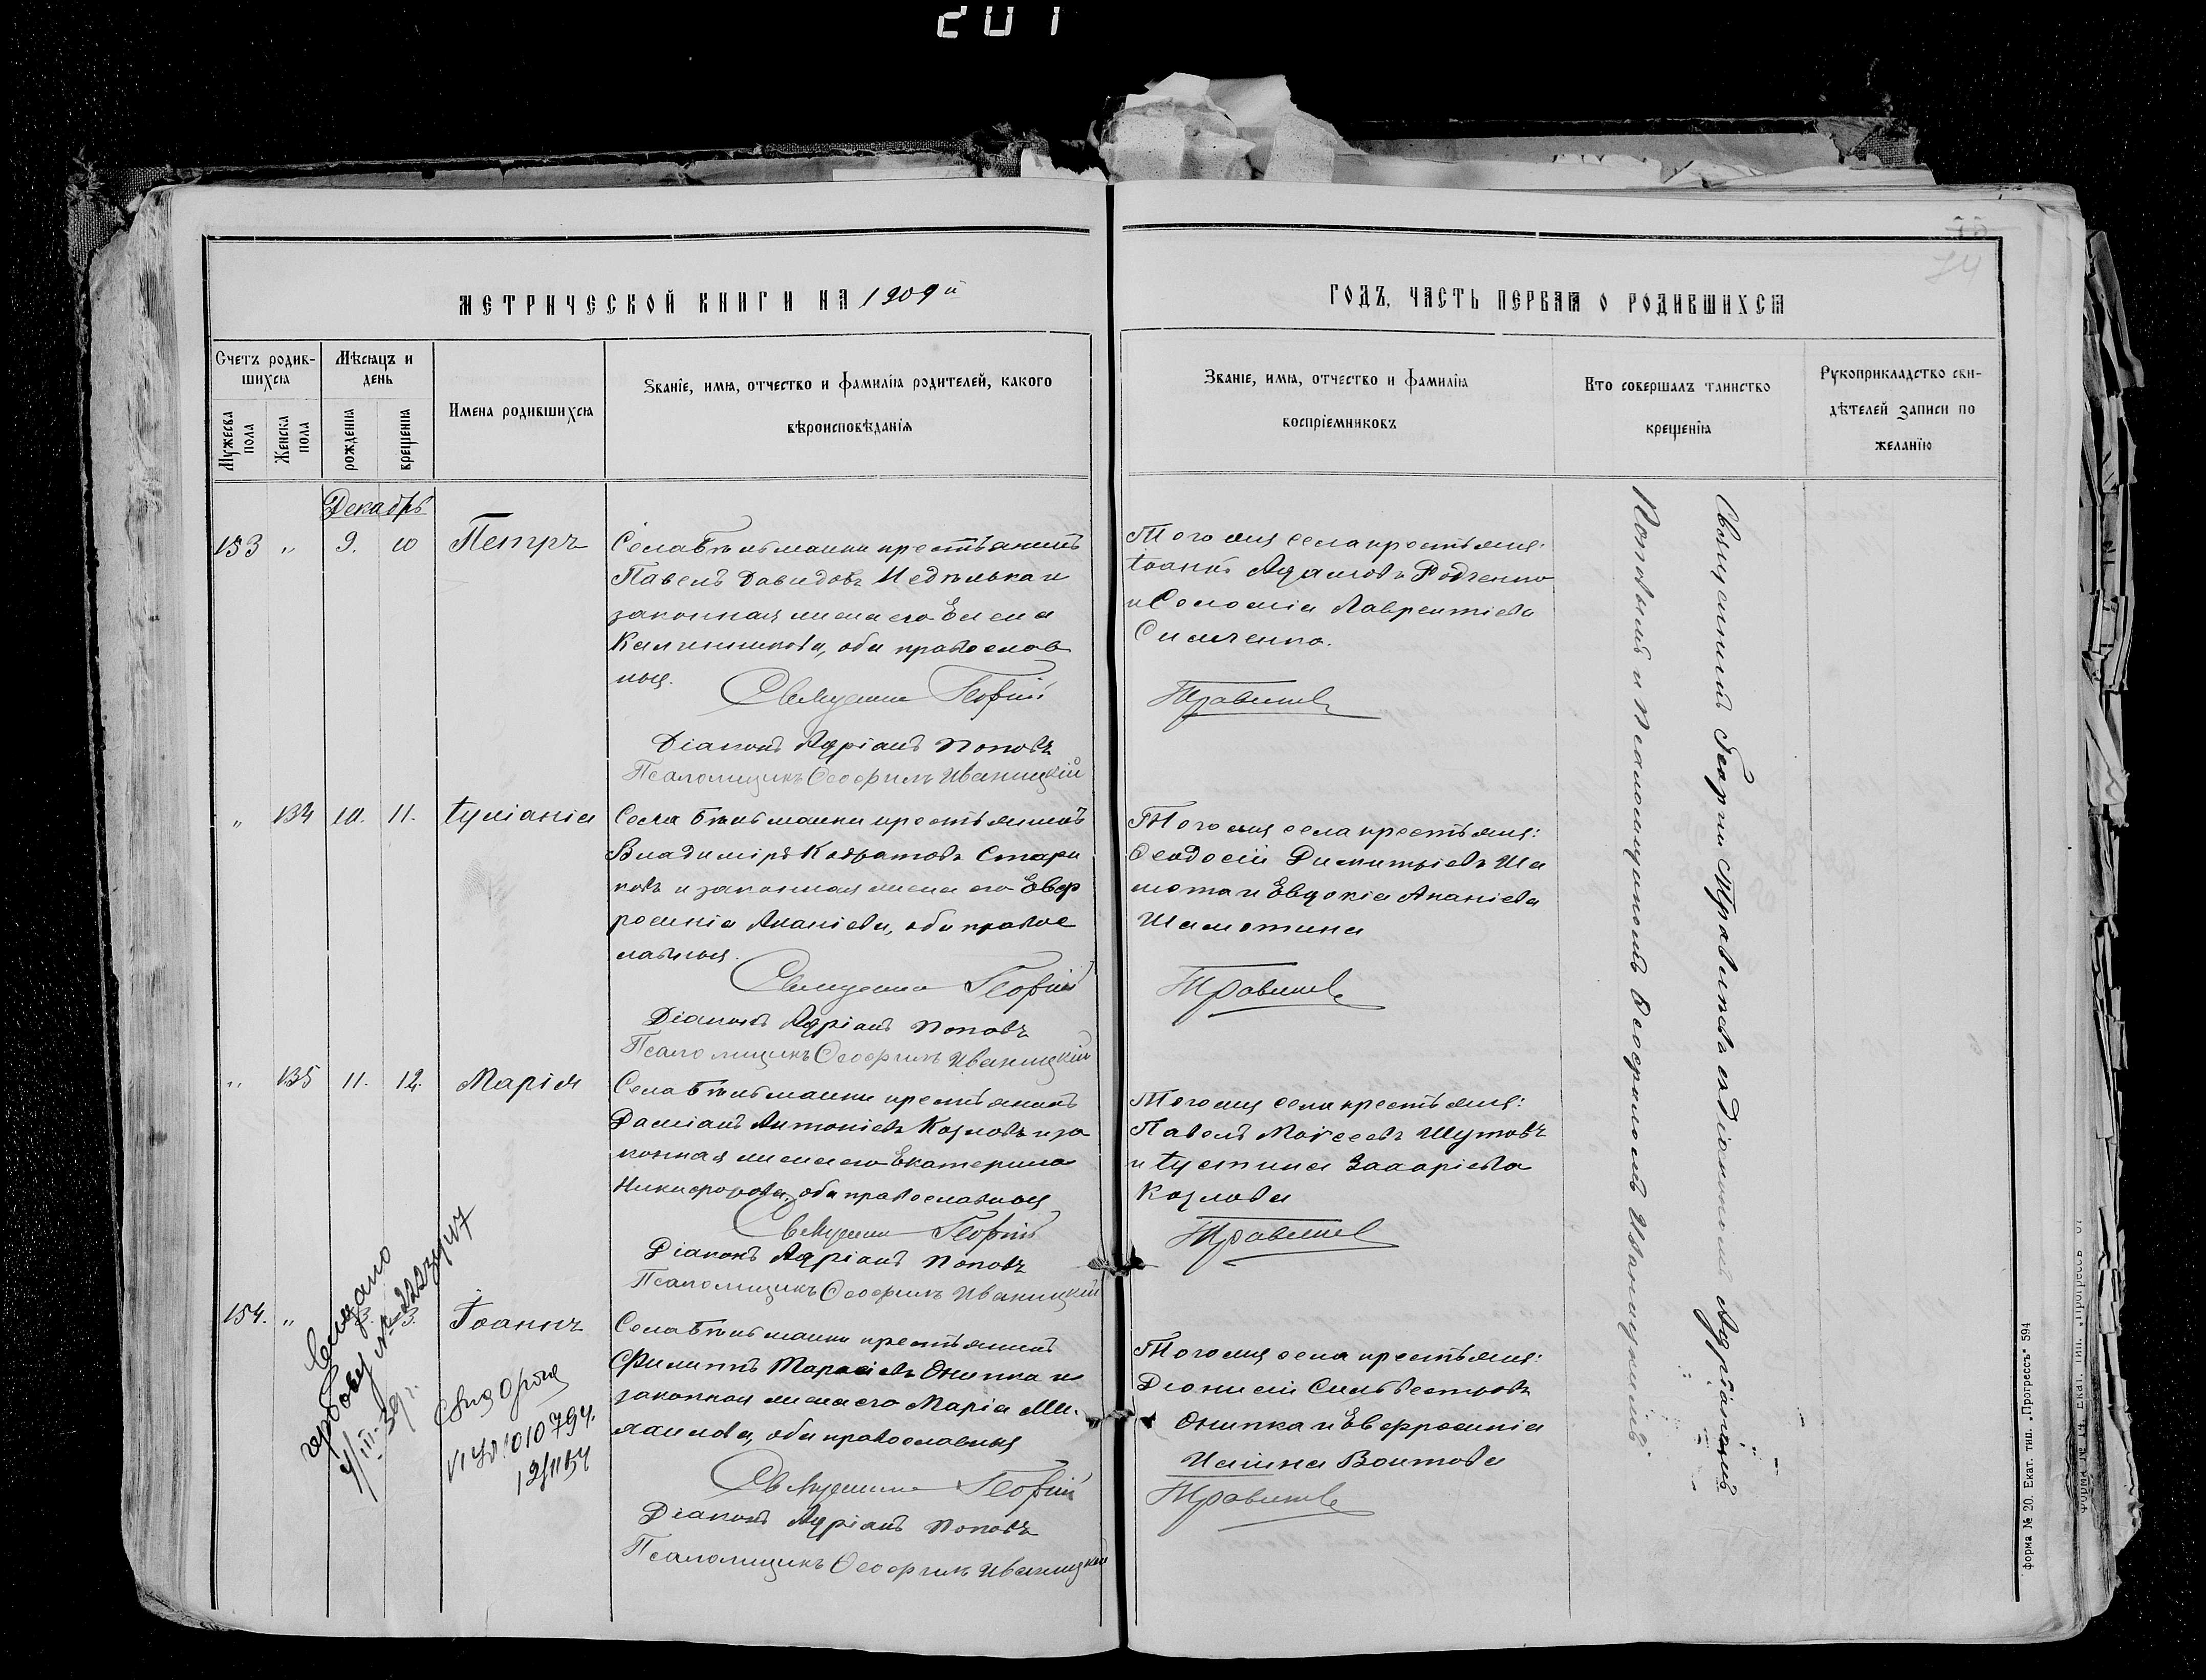 201
74
МЕТРИЧЕСКОЙ КНИГИ НА 1909й
ГОДЪ, ЧАСТЬ ПЕРВАЯ О РОДИВШИХСЯ
Счетъ родив-
шихся
Мужеска
пола
Женска
пола
Мѣсяцъ и
день
рожденія
крещенія
Имена родившихся
Званіе, имя, отчество и фамилія родителей, какого
вѣроисповѣданія
Званіе, имя, отчество и фамилія
воспріемниковъ
Кто совершалъ таинство
крещенія
Рукоприкладство сви-
дѣтелей записи по
желанію
Декабрь
153 „ 9. 10 Петръ
Села Бѣльманки крестьянинъ
Павелъ Давидовъ Недѣлька и
законная жена его Елена
Калинникова, оба православ
ныя.
Священникъ Георгій
Діаконъ Адріанъ Поповъ
Псаломщикъ Ѳеофилъ Иваницкій
Того жъ села крестьяне:
Іоаннъ Адамовъ Радченко
и Соломія Лаврентіева
Симченко.
Травлевъ
„ 134 10. 11. Іуліанія
Села Бѣльманки крестьянинъ
Владиміръ Кодратовъ Стари
ковъ и законная жена его Евф
росинія Ананіева, оба правос
лавныя.
Священникъ Георгій
Діаконъ Адріанъ Поповъ
Псаломщикъ Ѳеофилъ Иваницкій
Того жъ села крестьяне:
Ѳеодосій Димитріевъ Ша
мота и Евдокія Ананіева
Шамотина
„ 135 11. 12. Марія
Села Бѣльманки крестьянинъ
Даміанъ Антоніевъ Козловъ и за
конная жена его Екатерина
Никифорова, оба православныя
Священникъ Георгій
Діаконъ Адріанъ Поповъ
Псаломщикъ Ѳеофилъ Иваницкій
Того жъ села крестьяне:
Павелъ Моисеевъ Шутовъ
и Іустина Захаріева
Козлова
154. „ Іоаннъ
Села Бѣльманки крестьянинъ
Филиппъ Тарасіевъ Онипка и
законная жена его Марія Ми-
хаилова, оба православныя
Священникъ Георгій
Діаконъ Адріанъ Поповъ
Псаломщикъ Ѳеофилъ Иваницкій
Того жъ села крестьяне:
Діонисій Сильвестровъ
Онипка и Евфросинія
Воитова
4/III-39г.
Священникъ Георгій съ Діакономъ Адріаномъ
Поповымъ и Псаломщикомъ Ѳеофиломъ Иваницкимъ.
Форма № 20. Екат. тип. „Прогрессъ" 594